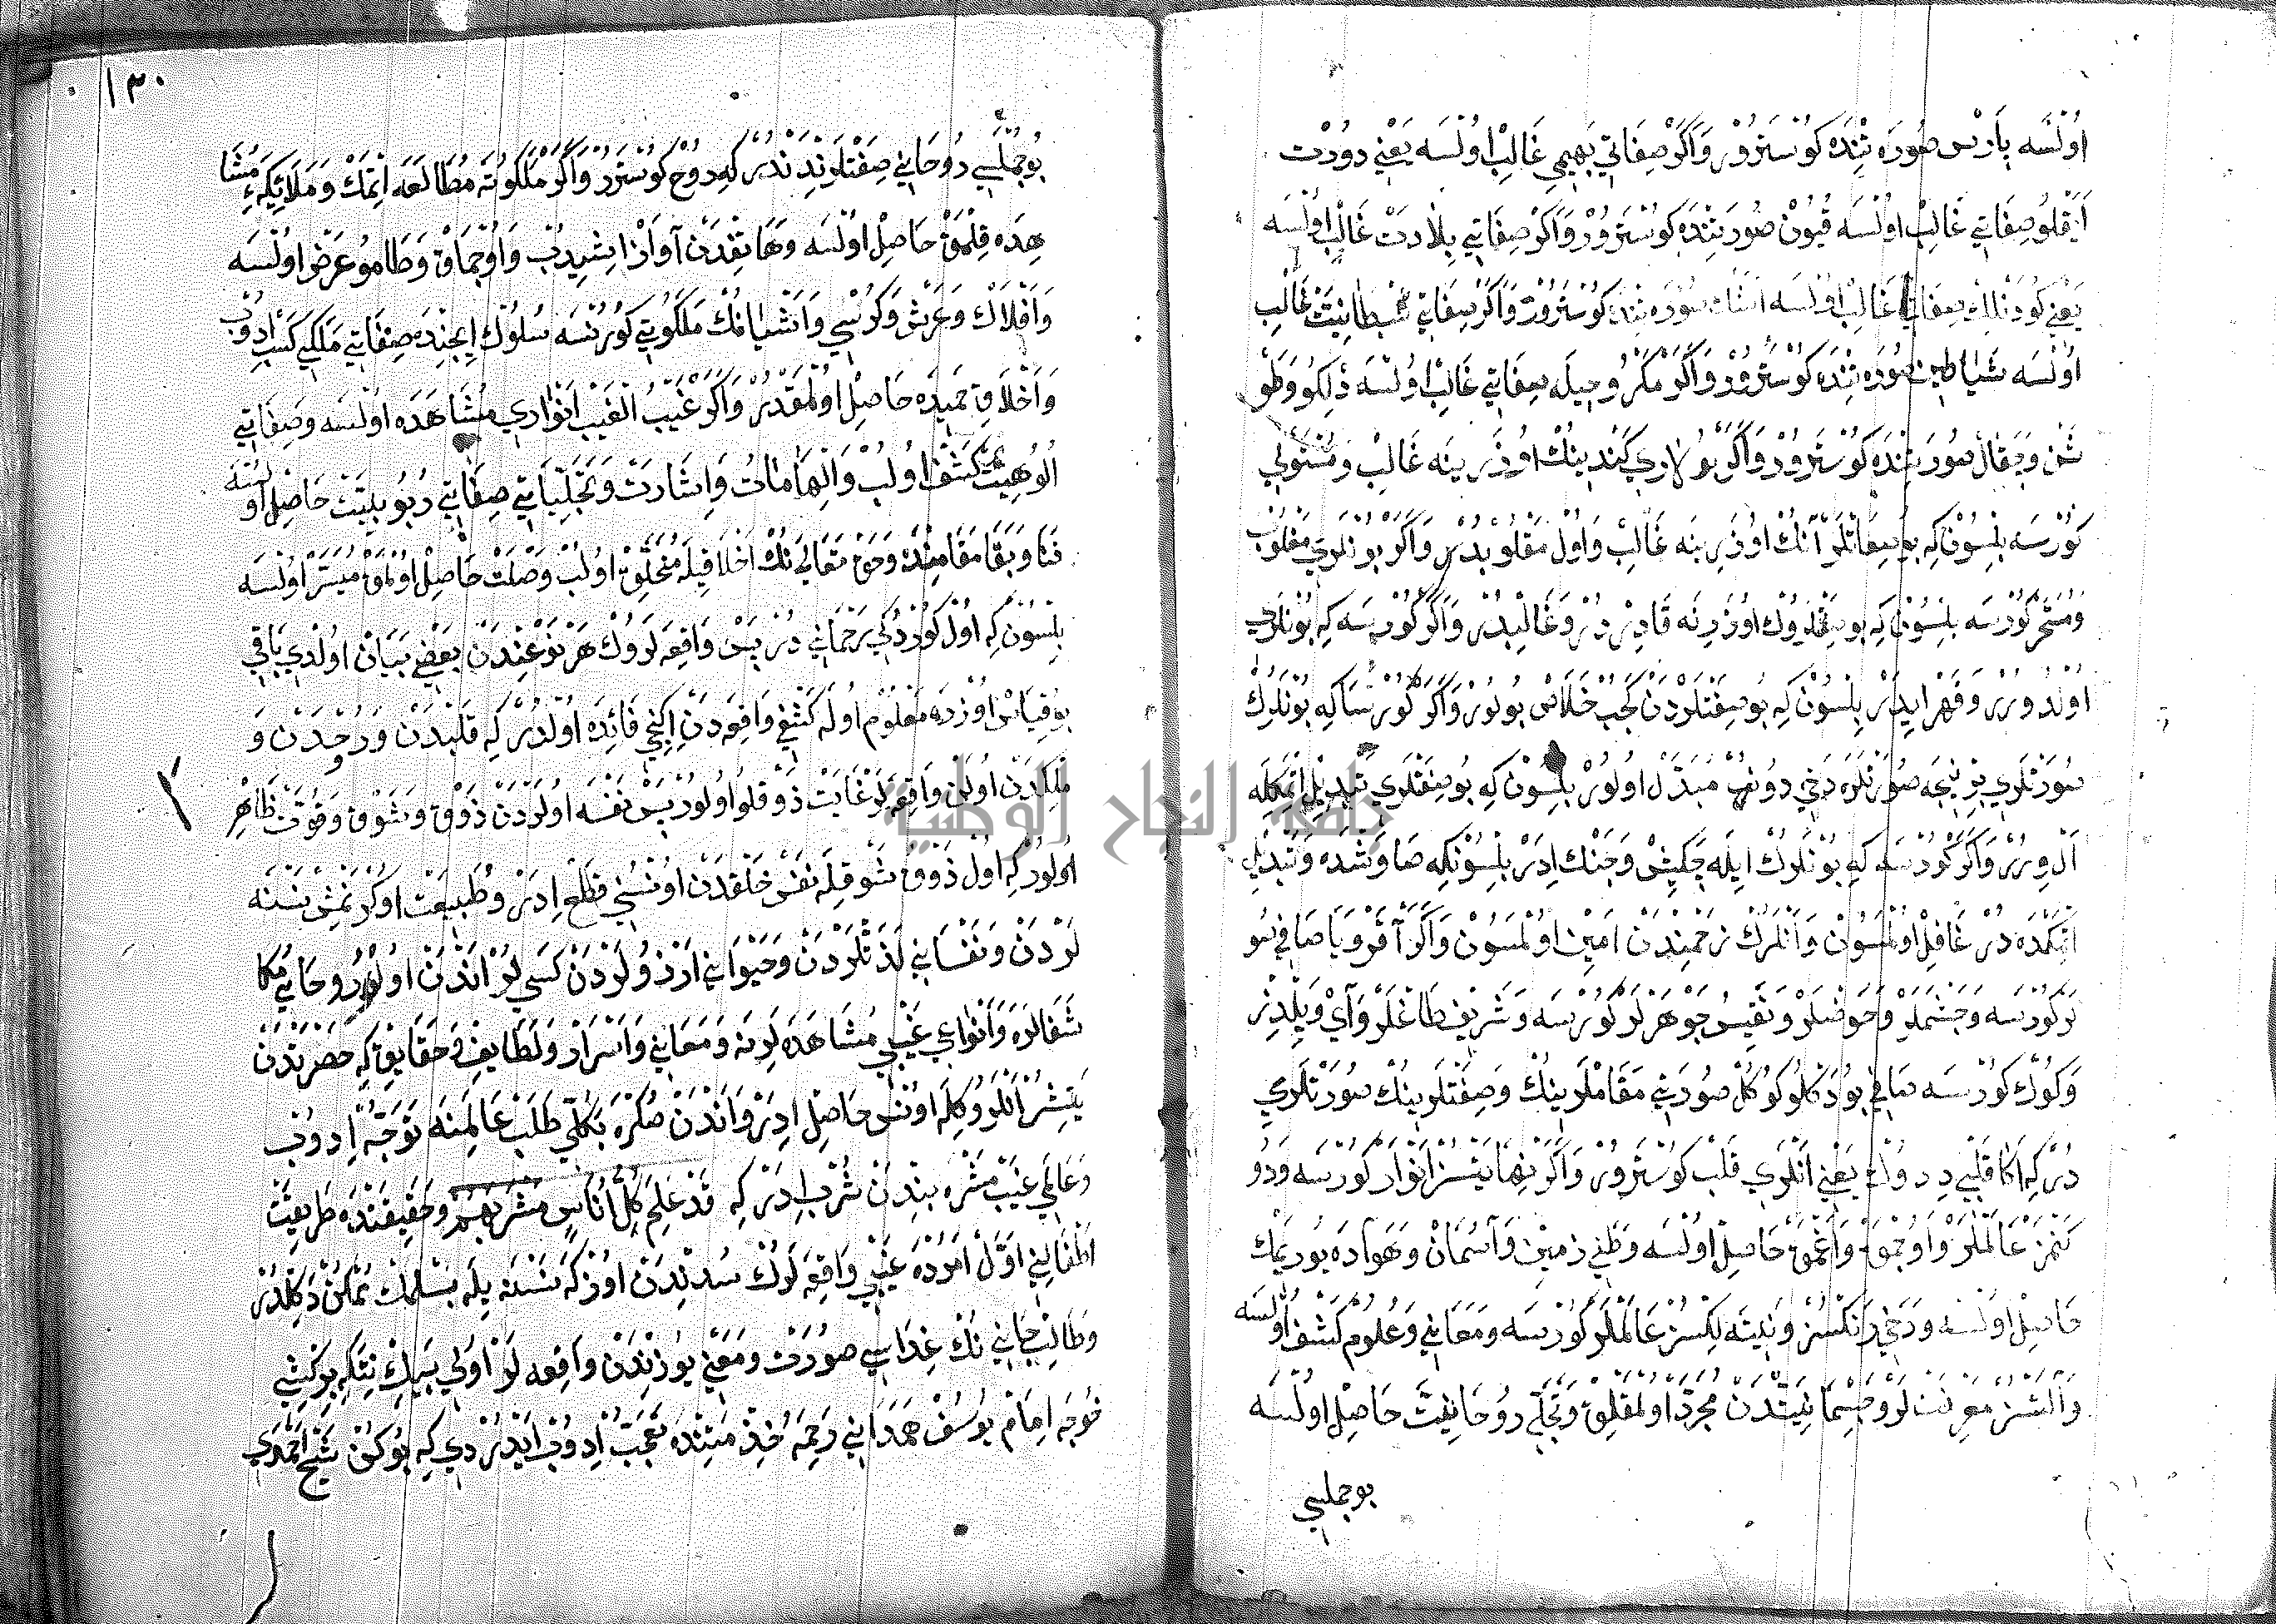 اولسه پارس صورتنده كوسترور واكر صفاتي بهيمي غالب اولسه يعني دورت
ايقلو صفاتي غالب اولسه قيون صورتنده كوسترور واكر صفاتي غالب اولسه
يعني صفاتي غالب اولسه صورتنده كوسترور واكر صفاتي شيطانيت غالب
اولسه شياطين صورتنده كوسترور واكر مكر وحيله صفاتي غالب اولسه دلكو وطو
شن وجقال صورتنده كوسترور واكر بولاري كندينك اوزرينه غالب ومستولي
كورسه بلسون كه بو صفاتلر آنك اوزرينه غالب واول مغلوبدر واكر بونلري مغلوب
ومسخر كورسه بلسون كه بو صفتلروك اوزرنه قادر در وغالبدر واكر كورسه كه بونلري
اولدورر وقهر ايدر بلسون كه بو صفتلردن كچب خلاص بولور واكر كورسا كه بونلرك
صورتلري بر نيجه صورتلره دخي دونب مبدل اولور بلسون كه بو صفتلري تبديل اتمكله
ال ويرر واكر كورسه كه بونلروك ايله چكيش وجنك ادر بلسونكه صاوشده وتبديل
اتمكده در غافل اولمسون وانلرك زخمندن امين اولمسون واكر آقر ويا صافي سو
لر كورسه وچشملر وحوضلر ونفيس جوهرلر كورسه وشريف طاغلر وآي ويلدز
وكوك كورسه صافي بو دكلو كوكل صورتي مقاملرينك وصفتلرينك صورتلري
دركه اكا قلبي درلر يعني انلري قلب كوسترور واكر نهايتسز انوار كورسه ودو
كنمز عالملر واوچمق واغمق حاصل اولسه وطي زمين وآسمان وهواده يوريمك
حاصل اولسه ودخي رنكسز ونيته لكسز عالملر كورسه ومعاني وعلوم كشف اولسه
والتسز معرفت لر وجسمانيتدن مجرد اولمقلق وتجلي روحانيت حاصل اولسه
بوجملسي
١٣٠
بوجملسي روحاني صفتلرندندر كه روح كوسترر واكر ملكوته مطالعه اتمك وملائكه مشا
هده قلمق حاصل اولسه وهاتفدن آواز ايشيدب واوچماق وطامو عرض اولسه
وافلاك وعرش وكرسي واشيانك ملكوتي كورنسه سلوك ايچنده صفاتي ملكي كسب ادوب
واخلاق حميده حاصل اولمقدر واكر غيب الغيب انواري مشاهده اولسه وصفاتي
الوهيت كشف اولب والهامات واشارت وتجلياتي صفاتي ربوبيت حاصل اولسه
فنا وبقا مقامنده وحق تعالي نك اخلاقيله متخلق اولب وصلت حاصل اولمق ميسر اولسه
بلسون كه اول كوردكي رحماني در پس واقعه لروك هر نوعندن بعض بيان اولدي باقي
بو قياس اوزره معلوم اوله كشفي واقعه دن ايكنجي فائده اولدر كه قلبدن وروحدن و
ملكدن اولن واقعه لر غايت ذوقلو اولور پس نفسه اولردن ذوق وشوق وقوت ظاهر
اولور كه اول ذوق شوقله نفس خلقدن اونسني قطع ادر وطبيعت اوكرنمش نسنه
لردن ونفساني لذتلردن وحيواني ارزولردن كسيلر اندن اولر روحاني مكا
شفالره وانواع غيبي مشاهده لرنه ومعاني واسرار ولطايف وحقايق كه حضرتندن
يتشر انلر وكله اونس حاصل ادر واندن صكره بكلي طلب عالمنه توجه ادوب
وعالمي غيب مشربندن شرب ادر كه قد علم كل اناس مشربهم وحقيقتده طريقت
اطفالني اول امرده غيبي واقعه لروك سدندن اوزكه نسنه يله بسلمك ممكن دكلدر
وطالب جاني نك غداسي صورت ومعني يوزندن واقعه لر اولي بيك نتكه بر كشي
خوجه امام يوسف همداني رحمه خذمتنده تعجب ادوب ايدردي كه بو كون شيخ احمدي